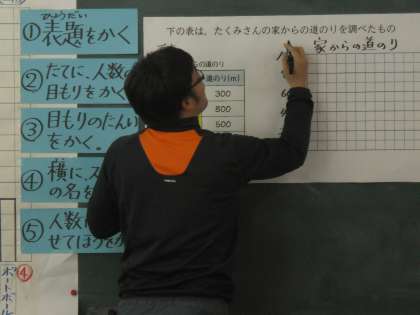 ひょうだい
①表題をかく
②たてに、人数の
目もりをかく
③目もりのたんい
をかく。
④横に、ス
の名を
⑤人数に
せてぼうをか
④
ポートボール
下の表は、たくみさんの家からの道のりを調べたもの
家からの道のり
の道のり
道のり(m)
300
800
500